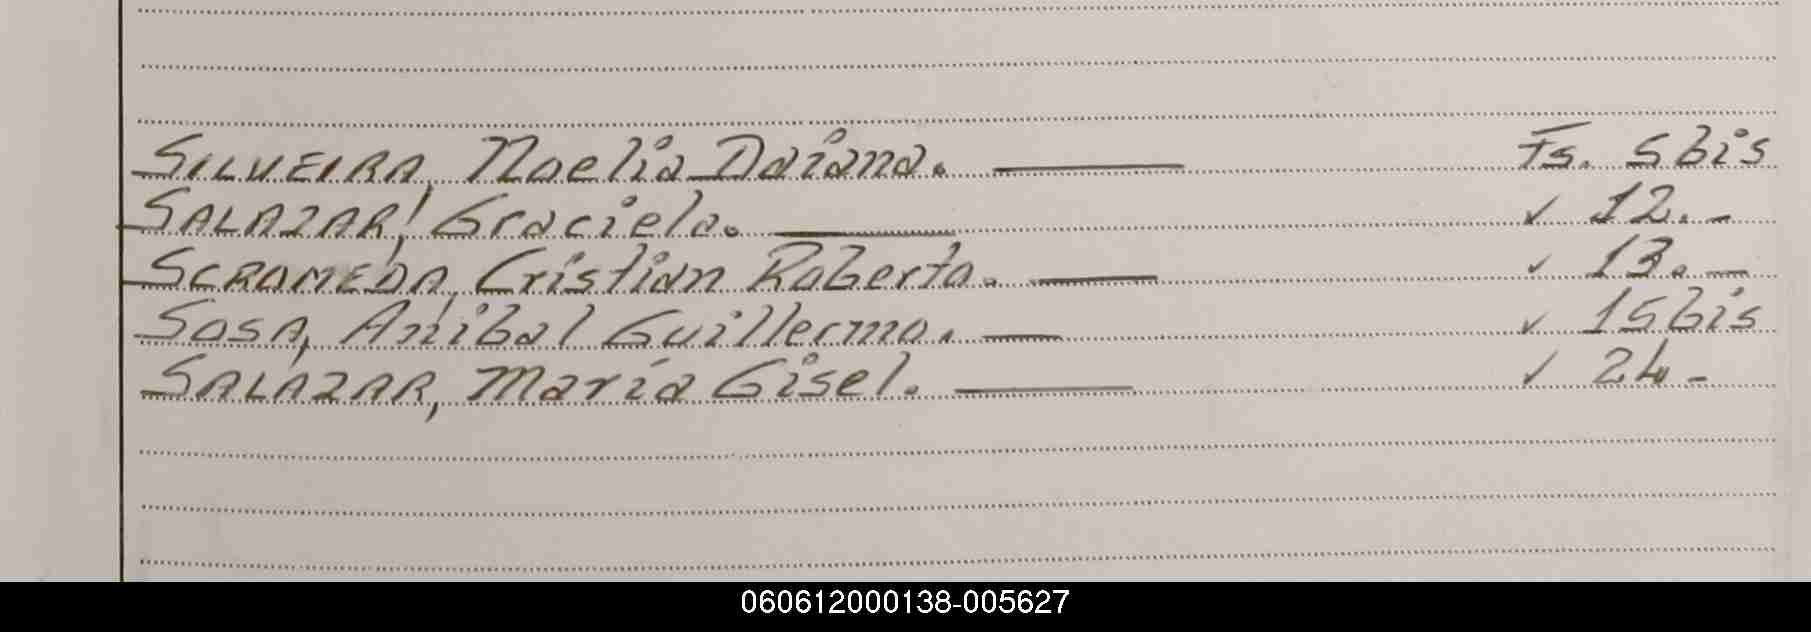 SILVEIRA, Noelia Daiana. — Fs. 5bis
SALAZAR, Graciela. — ✓ 12.-
SCROMEDA, Cristian Roberto. — ✓ 13.-
SOSA, Anibal Guillermo. — ✓ 15bis
SALAZAR, María Gisel. — ✓ 24-
060612000138-005627